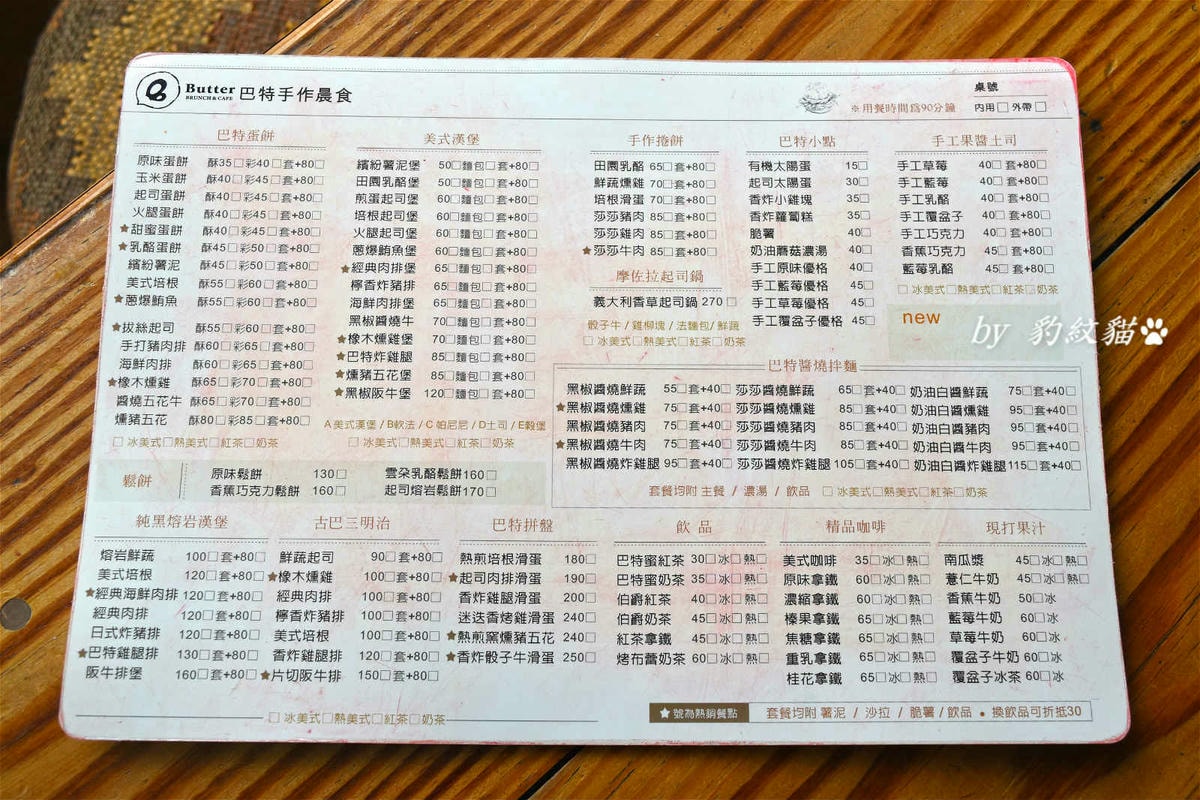 Butter 巴特手作晨食
BRUNCH & CAFE
※用餐時間為90分鐘
桌號
內用□ 外帶□
巴特蛋餅
原味蛋餅 酥35□彩40□套+80□
玉米蛋餅 酥40□彩45□套+80□
起司蛋餅 酥40□彩45□套+80□
火腿蛋餅 酥40□彩45□套+80□
★甜蜜蛋餅 酥40□彩45□套+80□
★乳酪蛋餅 酥45□彩50□套+80□
繽紛薯泥 酥45□彩50□套+80□
美式培根 酥55□彩60□套+80□
★蔥爆鮪魚 酥55□彩60□套+80□
★拔絲起司 酥55□彩60□套+80□
手打豬肉排 酥60□彩65□套+80□
海鮮肉排 酥60□彩65□套+80□
★橡木燻雞 酥65□彩70□套+80□
醬燒五花牛 酥65□彩70□套+80□
燻豬五花 酥80□彩85□套+80□
□冰美式□熱美式□紅茶□奶茶
美式漢堡
繽紛薯泥堡 50□麵包□套+80□
田園乳酪堡 50□麵包□套+80□
煎蛋起司堡 60□麵包□套+80□
培根起司堡 60□麵包□套+80□
火腿起司堡 60□麵包□套+80□
蔥爆鮪魚堡 60□麵包□套+80□
★經典肉排堡 65□麵包□套+80□
檸香炸豬堡 65□麵包□套+80□
海鮮肉排堡 65□麵包□套+80□
黑椒醬燒牛 70□麵包□套+80□
★橡木燻雞堡 70□麵包□套+80□
★巴特炸雞腿 85□麵包□套+80□
★燻豬五花堡 85□麵包□套+80□
★黑椒阪牛堡 120□麵包□套+80□
A美式漢堡 / B軟法 / C帕尼尼 / D土司 / E穀堡
□冰美式□熱美式□紅茶□奶茶
手作捲餅
田園乳酪 65□套+80□
鮮蔬燻雞 70□套+80□
培根滑蛋 70□套+80□
莎莎豬肉 85□套+80□
莎莎雞肉 85□套+80□
★莎莎牛肉 85□套+80□
摩佐拉起司鍋
義大利香草起司鍋 270□
骰子牛 / 雞柳塊 / 法麵包 / 鮮蔬
□冰美式□熱美式□紅茶□奶茶
巴特小點
有機太陽蛋 15□
起司太陽蛋 30□
香炸小雞塊 35□
香炸蘿蔔糕 35□
脆薯 40□
奶油蘑菇濃湯 40□
手工原味優格 40□
手工藍莓優格 45□
手工草莓優格 45□
手工覆盆子優格 45□
手工果醬土司
手工草莓 40□套+80□
手工藍莓 40□套+80□
手工乳酪 40□套+80□
手工覆盆子 40□套+80□
手工巧克力 40□套+80□
香蕉巧克力 45□套+80□
藍莓乳酪 45□套+80□
□冰美式□熱美式□紅茶□奶茶
new
by 豹紋貓
巴特醬燒拌麵
黑椒醬燒鮮蔬 55□套+40□ 莎莎醬燒鮮蔬 65□套+40□ 奶油白醬鮮蔬 75□套+40□
★黑椒醬燒燻雞 75□套+40□ 莎莎醬燒燻雞 85□套+40□ 奶油白醬燻雞 95□套+40□
黑椒醬燒豬肉 75□套+40□ 莎莎醬燒豬肉 85□套+40□ 奶油白醬豬肉 95□套+40□
★黑椒醬燒牛肉 75□套+40□ 莎莎醬燒牛肉 85□套+40□ 奶油白醬牛肉 95□套+40□
黑椒醬燒炸雞腿 95□套+40□ 莎莎醬燒炸雞腿 105□套+40□ 奶油白醬炸雞腿 115□套+40□
套餐均附 主餐 / 濃湯 / 飲品 □冰美式□熱美式□紅茶□奶茶
鬆餅
原味鬆餅 130□ 雲朵乳酪鬆餅160□
香蕉巧克力鬆餅 160□ 起司熔岩鬆餅170□
純黑熔岩漢堡
熔岩鮮蔬 100□套+80□
美式培根 120□套+80□
★經典海鮮肉排 120□套+80□
經典肉排 120□套+80□
日式炸豬排 120□套+80□
★巴特雞腿排 130□套+80□
阪牛排堡 160□套+80□
古巴三明治
鮮蔬起司 90□套+80□
★橡木燻雞 100□套+80□
經典肉排 100□套+80□
檸香炸豬排 100□套+80□
美式培根 100□套+80□
香炸雞腿排 120□套+80□
★片切阪牛排 150□套+80□
□冰美式□熱美式□紅茶□奶茶
巴特拼盤
熱煎培根滑蛋 180□
★起司肉排滑蛋 190□
香炸雞腿滑蛋 200□
迷迭香烤雞滑蛋 240□
★熱煎窯燻豬五花 240□
★香炸骰子牛滑蛋 250□
飲品
巴特蜜紅茶 30□冰□熱□
巴特蜜奶茶 35□冰□熱□
伯爵紅茶 40□冰□熱□
伯爵奶茶 45□冰□熱□
紅茶拿鐵 45□冰□熱□
烤布蕾奶茶 60□冰□熱□
精品咖啡
美式咖啡 35□冰□熱□
原味拿鐵 60□冰□熱□
濃縮拿鐵 60□冰□熱□
榛果拿鐵 65□冰□熱□
焦糖拿鐵 65□冰□熱□
重乳拿鐵 65□冰□熱□
桂花拿鐵 65□冰□熱□
現打果汁
南瓜漿 45□冰□熱□
薏仁牛奶 45□冰□熱□
香蕉牛奶 50□冰
藍莓牛奶 60□冰
草莓牛奶 60□冰
覆盆子牛奶 60□冰
覆盆子冰茶 60□冰
★號為熱銷餐點
套餐均附 薯泥 / 沙拉 / 脆薯 / 飲品 • 換飲品可折抵30